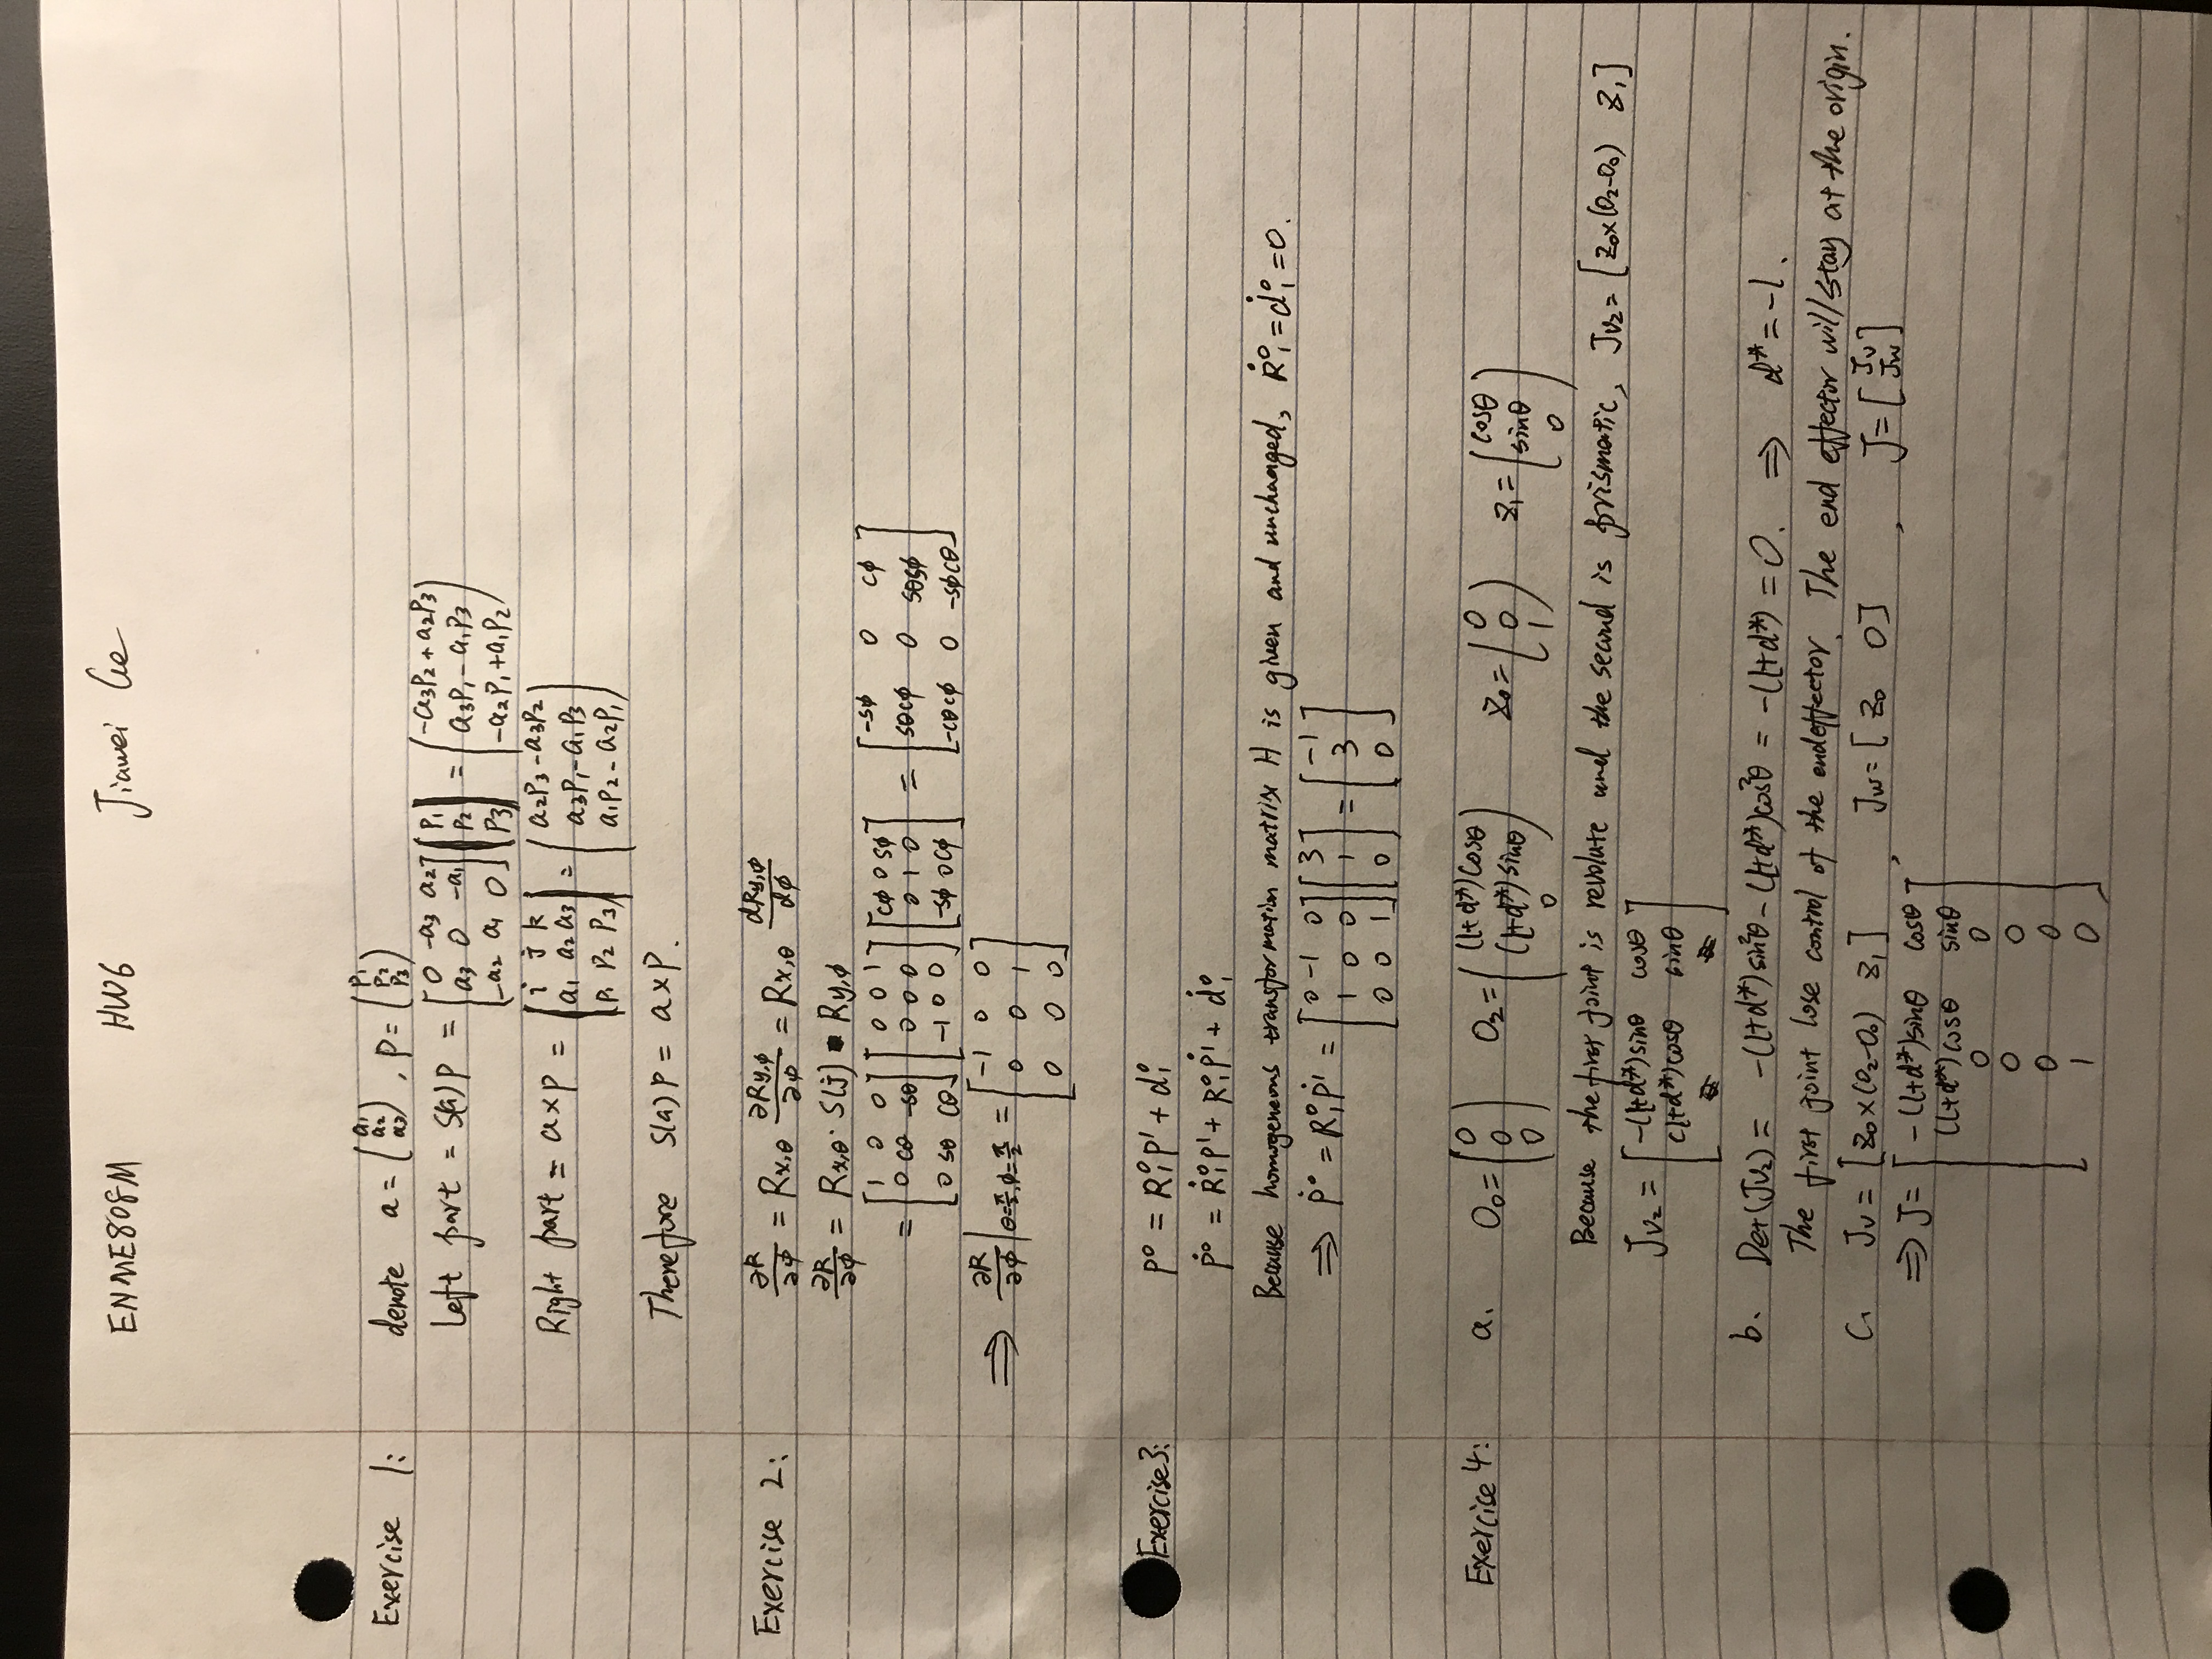 ENME808M HW6 Jiawei Ge
Exercise 1: denote a = (a1 a2 a3), P = (P1 P2 P3)
Left part = S(a)P = [0 -a3 a2; a3 0 -a1; -a2 a1 0] [P1 P2 P3] = (-a3P2 + a2P3; a3P1 - a1P3; -a2P1 + a1P2)
Right part = a×P = |i j k; a1 a2 a3; P1 P2 P3| = (a2P3 - a3P2; a3P1 - a1P3; a1P2 - a2P1)
Therefore S(a)P = a×P.
Exercise 2: ∂R/∂φ = Rx,θ ∂Ry,φ/∂φ = Rx,θ dRy,φ/dφ
∂R/∂φ = Rx,θ · S(j) · Ry,φ
= [1 0 0; 0 cθ -sθ; 0 sθ cθ] [0 0 1; 0 0 0; -1 0 0] [cφ 0 sφ; 0 1 0; -sφ 0 cφ] = [-sφ 0 cφ; sθcφ 0 sθsφ; -cθcφ 0 -sφcθ]
⇒ ∂R/∂φ |θ=π/2,φ=π/2 = [-1 0 0; 0 0 1; 0 0 0]
Exercise3: P⁰ = R₁⁰P¹ + d₁⁰
Ṗ⁰ = Ṙ₁⁰P¹ + R₁⁰Ṗ¹ + ḋ₁⁰
Because homogeneous transformation matrix H is given and unchanged, Ṙ₁⁰ = ḋ₁⁰ = 0.
⇒ Ṗ⁰ = R₁⁰Ṗ¹ = [0 -1 0; 1 0 0; 0 0 1] [3; 1; 0] = [-1; 3; 0]
Exercise 4: a. O0 = (0; 0; 0) O2 = ((l+d*)cosθ; (l+d*)sinθ; 0) Z0 = (0; 0; 1) Z1 = (cosθ; sinθ; 0)
Because the first joint is revolute and the second is prismatic, Jv2 = [Z0×(O2-O0) Z1]
Jv2 = [-(l+d*)sinθ cosθ; (l+d*)cosθ sinθ]
b. Det(Jv2) = -(l+d*)sin²θ - (l+d*)cos²θ = -(l+d*) = 0. ⇒ d* = -l.
The first joint lose control of the endeffector. The end effector will stay at the origin.
c. Jv = [Z0×(O2-O0) Z1], Jw = [Z0 0], J = [Jv; Jw]
⇒ J = [-(l+d*)sinθ cosθ; (l+d*)cosθ sinθ; 0 0; 0 0; 0 0; 1 0]